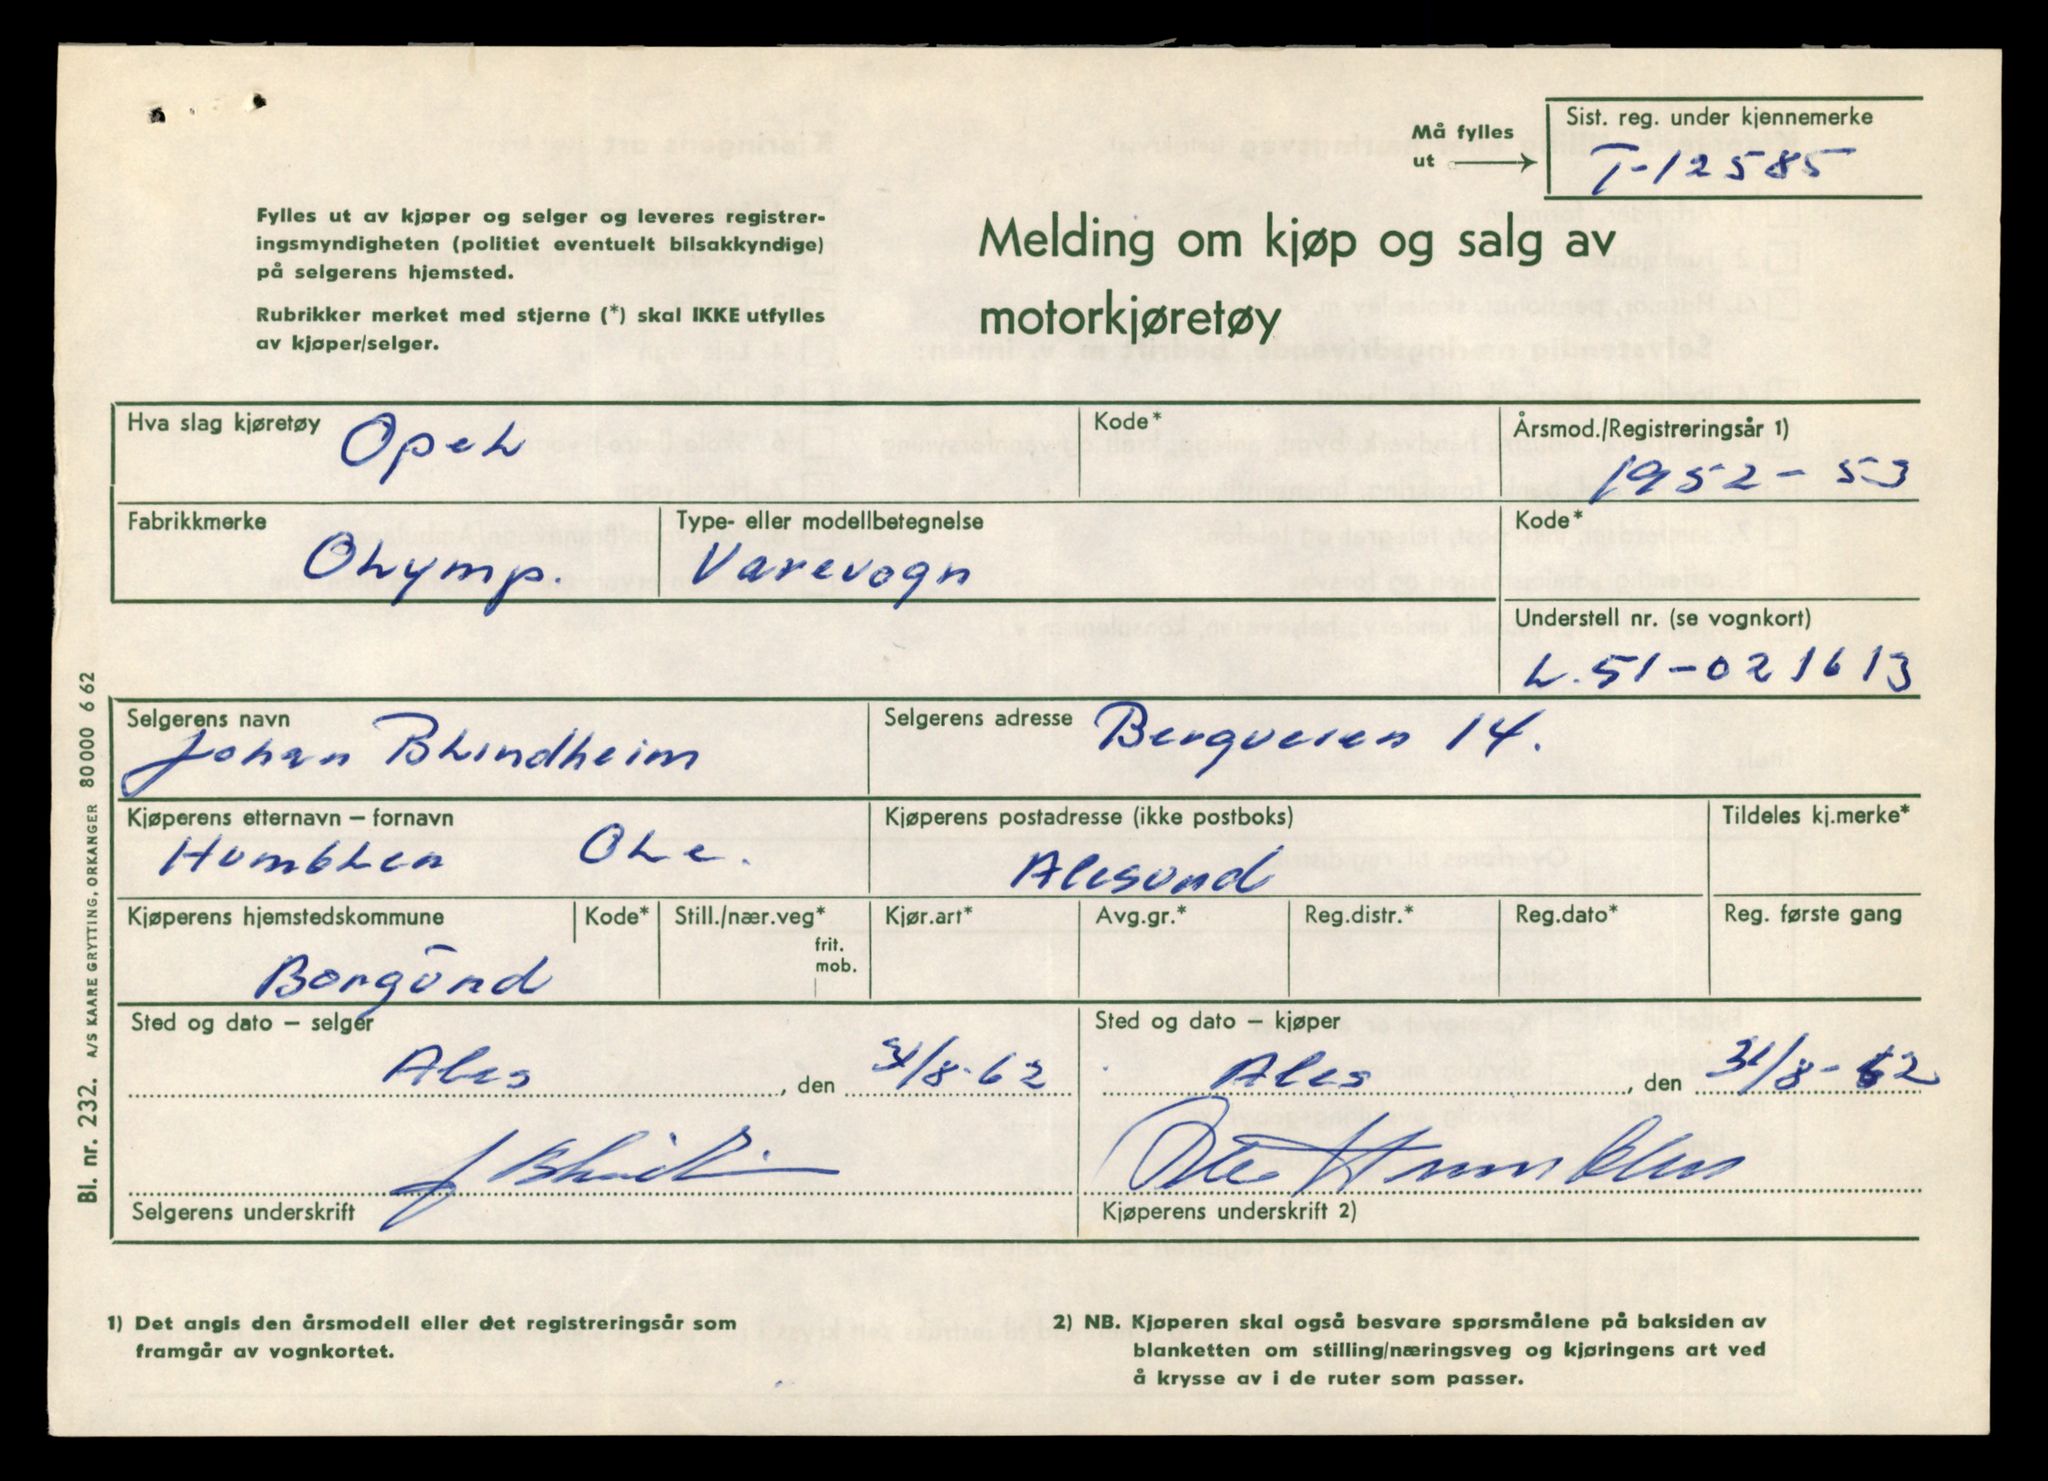 Må fylles
ut
Sist. reg. under kjennemerke
T-12585
Fylles ut av kjøper og selger og leveres registrer-
ingsmyndigheten (politiet eventuelt bilsakkyndige)
på selgerens hjemsted.
Rubrikker merket med stjerne (*) skal IKKE utfylles
av kjøper/selger.
Melding om kjøp og salg av
motorkjøretøy
Hva slag kjøretøy
Opel
Kode*
Årsmod./Registreringsår 1)
1952-53
Fabrikkmerke
Olymp.
Type- eller modellbetegnelse
Varevogn
Kode*
Understell nr. (se vognkort)
L.51-021613
Selgerens navn
Johan Blindheim
Selgerens adresse
Bergveien 14.
Kjøperens etternavn – fornavn
Humblen Ole.
Kjøperens postadresse (ikke postboks)
Alesund
Tildeles kj.merke*
Kjøperens hjemstedskommune
Borgund
Kode*
Still./nær.veg*
frit.
mob.
Kjør.art*
Avg.gr.*
Reg.distr.*
Reg.dato*
Reg. første gang
Sted og dato – selger
Ales, den 31/8-62
Sted og dato – kjøper
Ales, den 31/8-62
J Blindheim
Ole Humblen
Selgerens underskrift
Kjøperens underskrift 2)
1) Det angis den årsmodell eller det registreringsår som
framgår av vognkortet.
2) NB. Kjøperen skal også besvare spørsmålene på baksiden av
blanketten om stilling/næringsveg og kjøringens art ved
å krysse av i de ruter som passer.
Bl. nr. 232. A/S KAARE GRYTTING, ORKANGER 80000 6 62